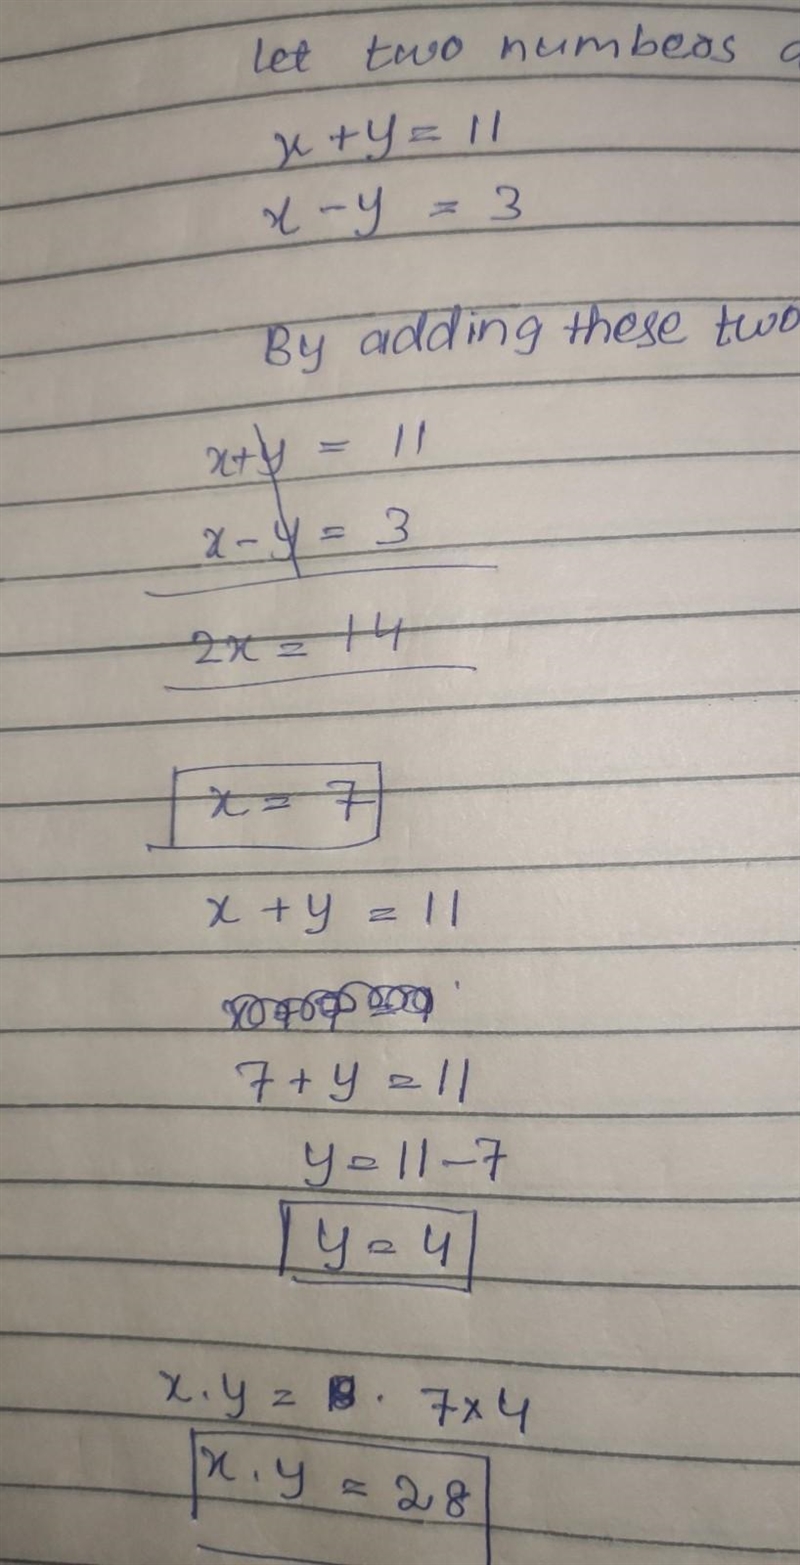 Let two numbers
x + y = 11
x - y = 3
By adding these two
x + y = 11
x - y = 3
2x = 14
x = 7
x + y = 11
7 + y = 11
y = 11 - 7
y = 4
x . y = . 7 x 4
x . y = 28